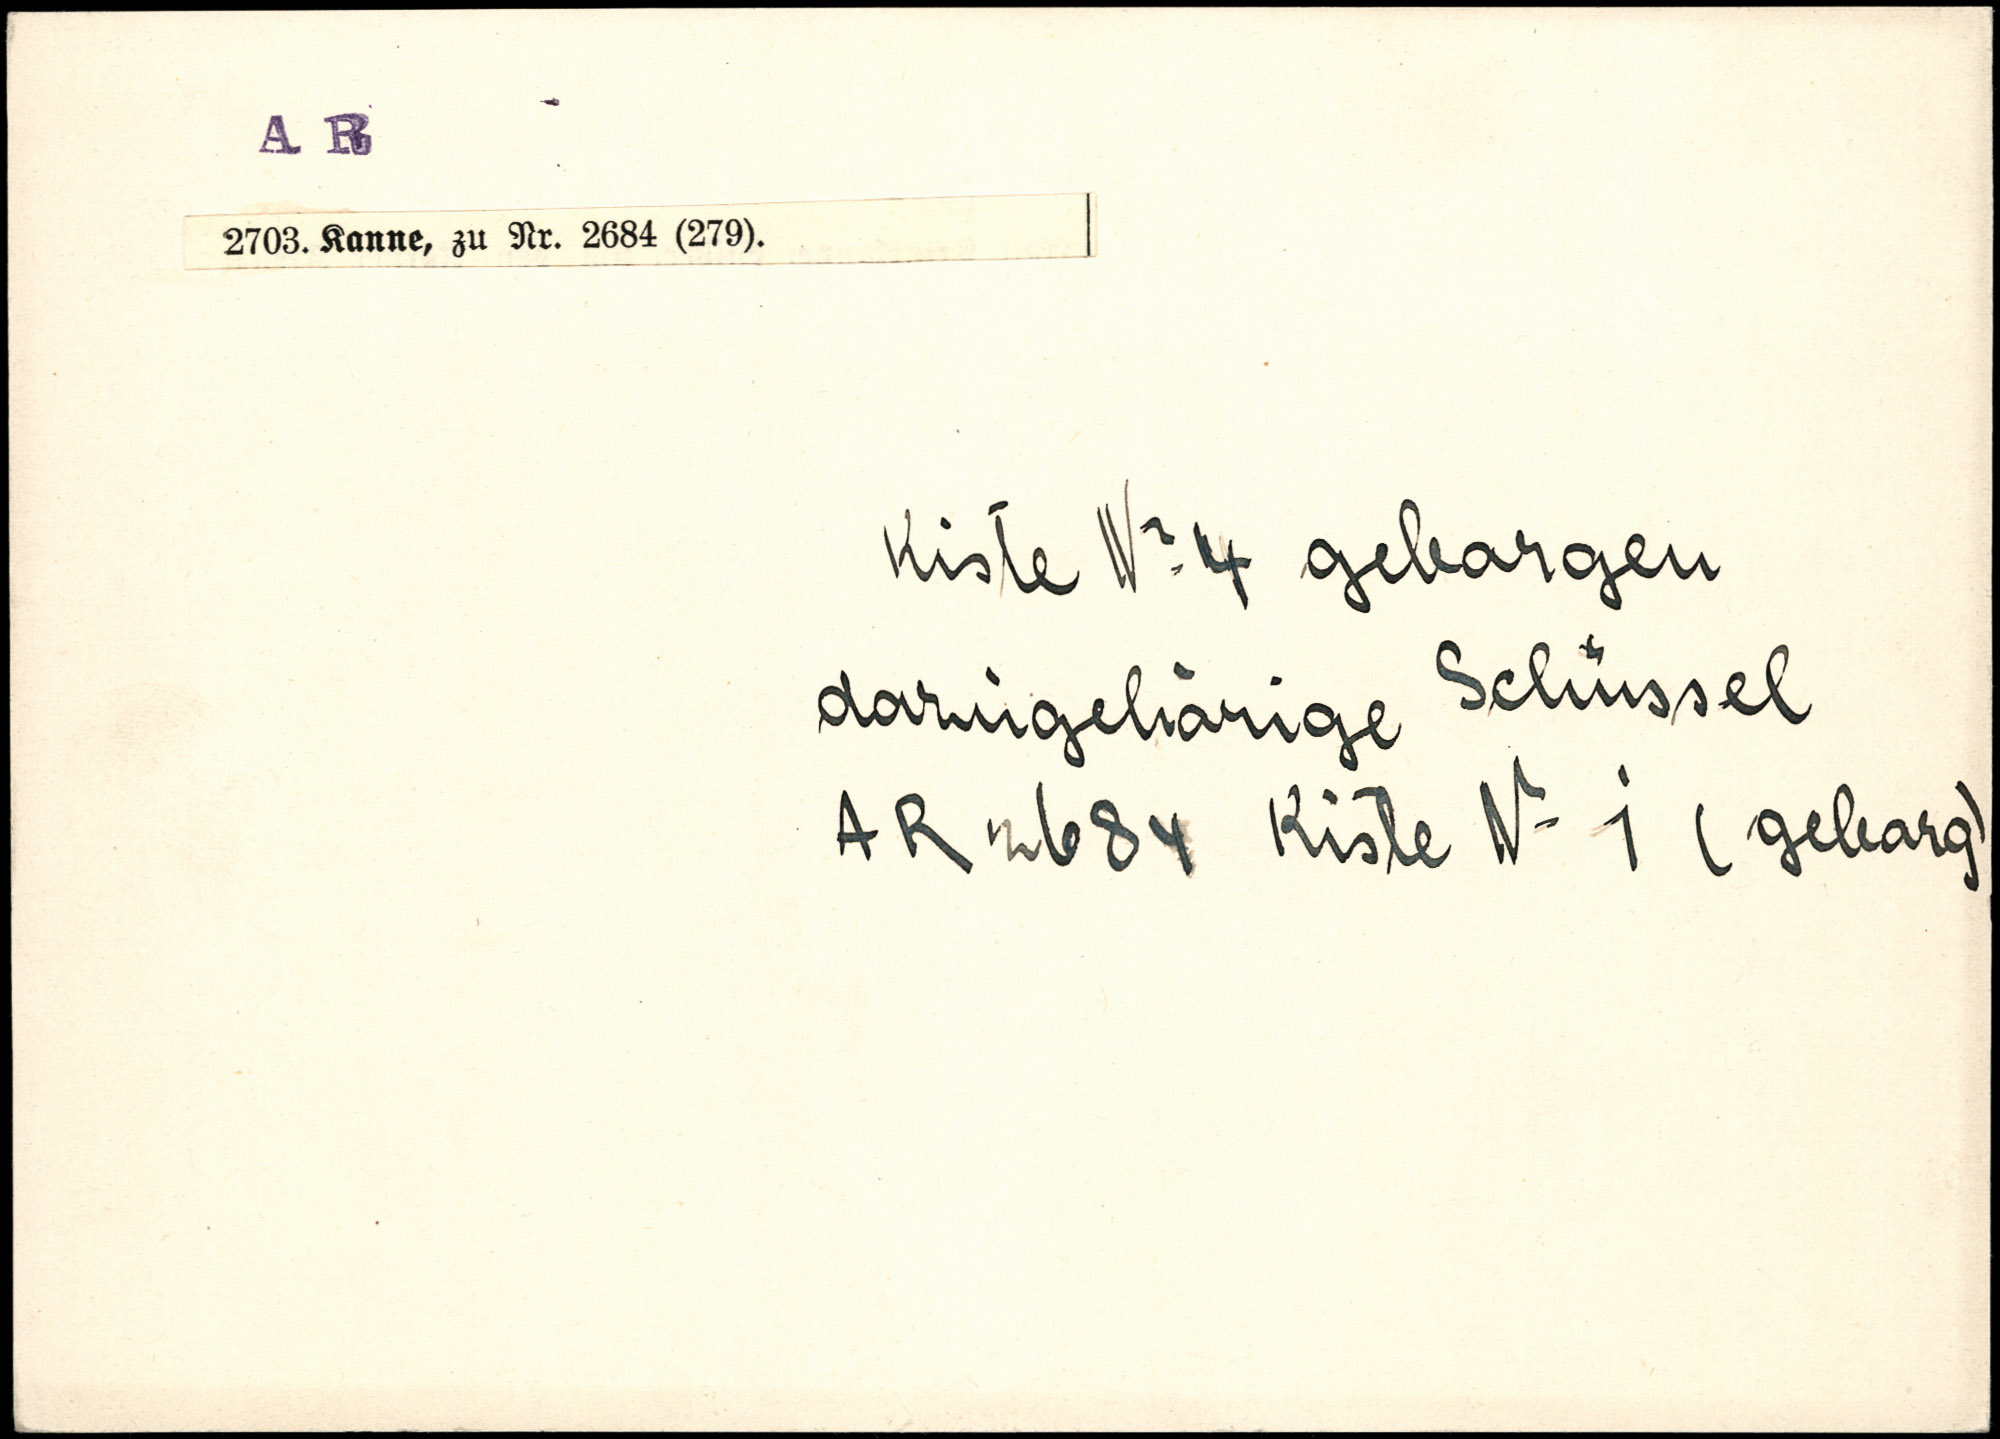 A R
2703. Kanne, zu Nr. 2684 (279).
Kiste Nr. 4 geborgen
dazugehörige Schüssel
AR 2684 Kiste Nr 1 (geborg)